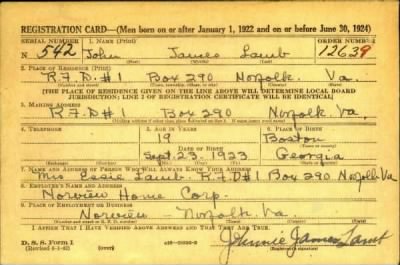 REGISTRATION CARD—(Men born on or after January 1, 1922 and on or before June 30, 1924)
SERIAL NUMBER 1. NAME (Print) ORDER NUMBER
N 542 John James Lamb 12639
(First) (Middle) (Last)
2. PLACE OF RESIDENCE (Print)
R.F.D.#1 Box 290 Norfolk, Va.
(Number and street) (Town, township, village, or city) (County) (State)
[THE PLACE OF RESIDENCE GIVEN ON THE LINE ABOVE WILL DETERMINE LOCAL BOARD
JURISDICTION; LINE 2 OF REGISTRATION CERTIFICATE WILL BE IDENTICAL]
3. MAILING ADDRESS
R.F.D#1 Box 290 Norfolk Va.
4. TELEPHONE 5. AGE IN YEARS 6. PLACE OF BIRTH
19 Boston
DATE OF BIRTH
Sept. 23, 1923 Georgia
(Exchange) (Number) (Mo.) (Day) (Yr.) (State or country)
7. NAME AND ADDRESS OF PERSON WHO WILL ALWAYS KNOW YOUR ADDRESS
Mrs Essie Lamb. R.F.D#1 Box 290 Norfolk Va
8. EMPLOYER'S NAME AND ADDRESS
Norview Home Corp.
9. PLACE OF EMPLOYMENT OR BUSINESS
Norview Norfolk. Va.
(Number and street or R. F. D. number) (Town) (County) (State)
I AFFIRM THAT I HAVE VERIFIED ABOVE ANSWERS AND THAT THEY ARE TRUE.
D. S. S. Form 1
Johnnie James Lamb